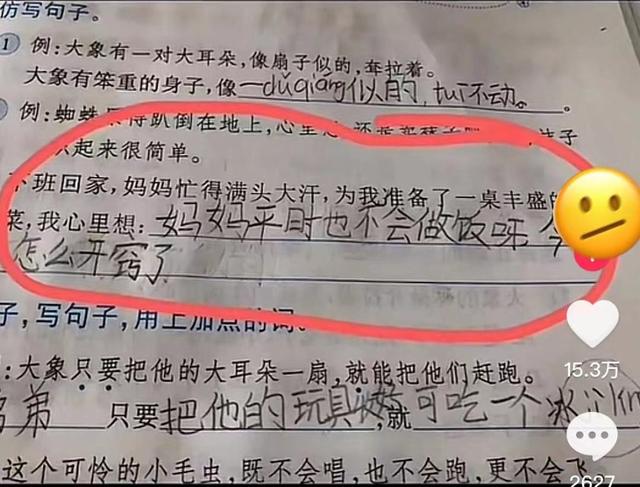 仿写句子。
1 例:大象有一对大耳朵,像扇子似的,耷拉着。
大象有笨重的身子,像一dǔqiáng似的,tuī不动。
例:蜘蛛 得趴倒在地上,心里
起来很简单。
下班回家,妈妈忙得满头大汗,为我准备了一桌丰盛的
菜,我心里想:妈妈平时也不会做饭呀 今
怎么开窍了
子,写句子,用上加点的词。
:大象只要把他的大耳朵一扇,就能把他们赶跑。
弟弟 只要把他的玩具 ,就可吃一个冰
15.3万
这个可怜的小毛虫,既不会唱,也不会跑,更不会飞
2627